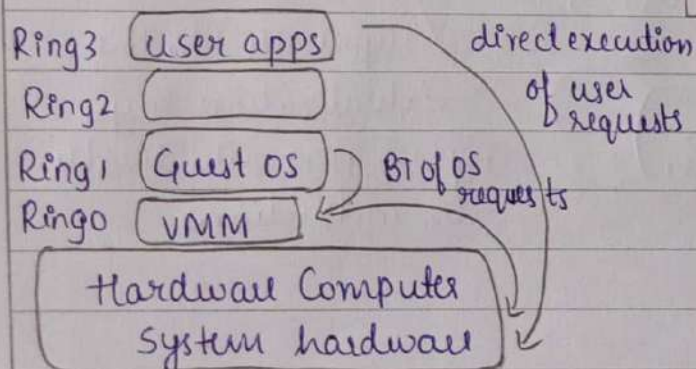 Ring3 user apps direct execution
Ring2 of user
requests
Ring1 Guest OS BT of OS
requests
Ring0 VMM
Hardware Computer
System hardware